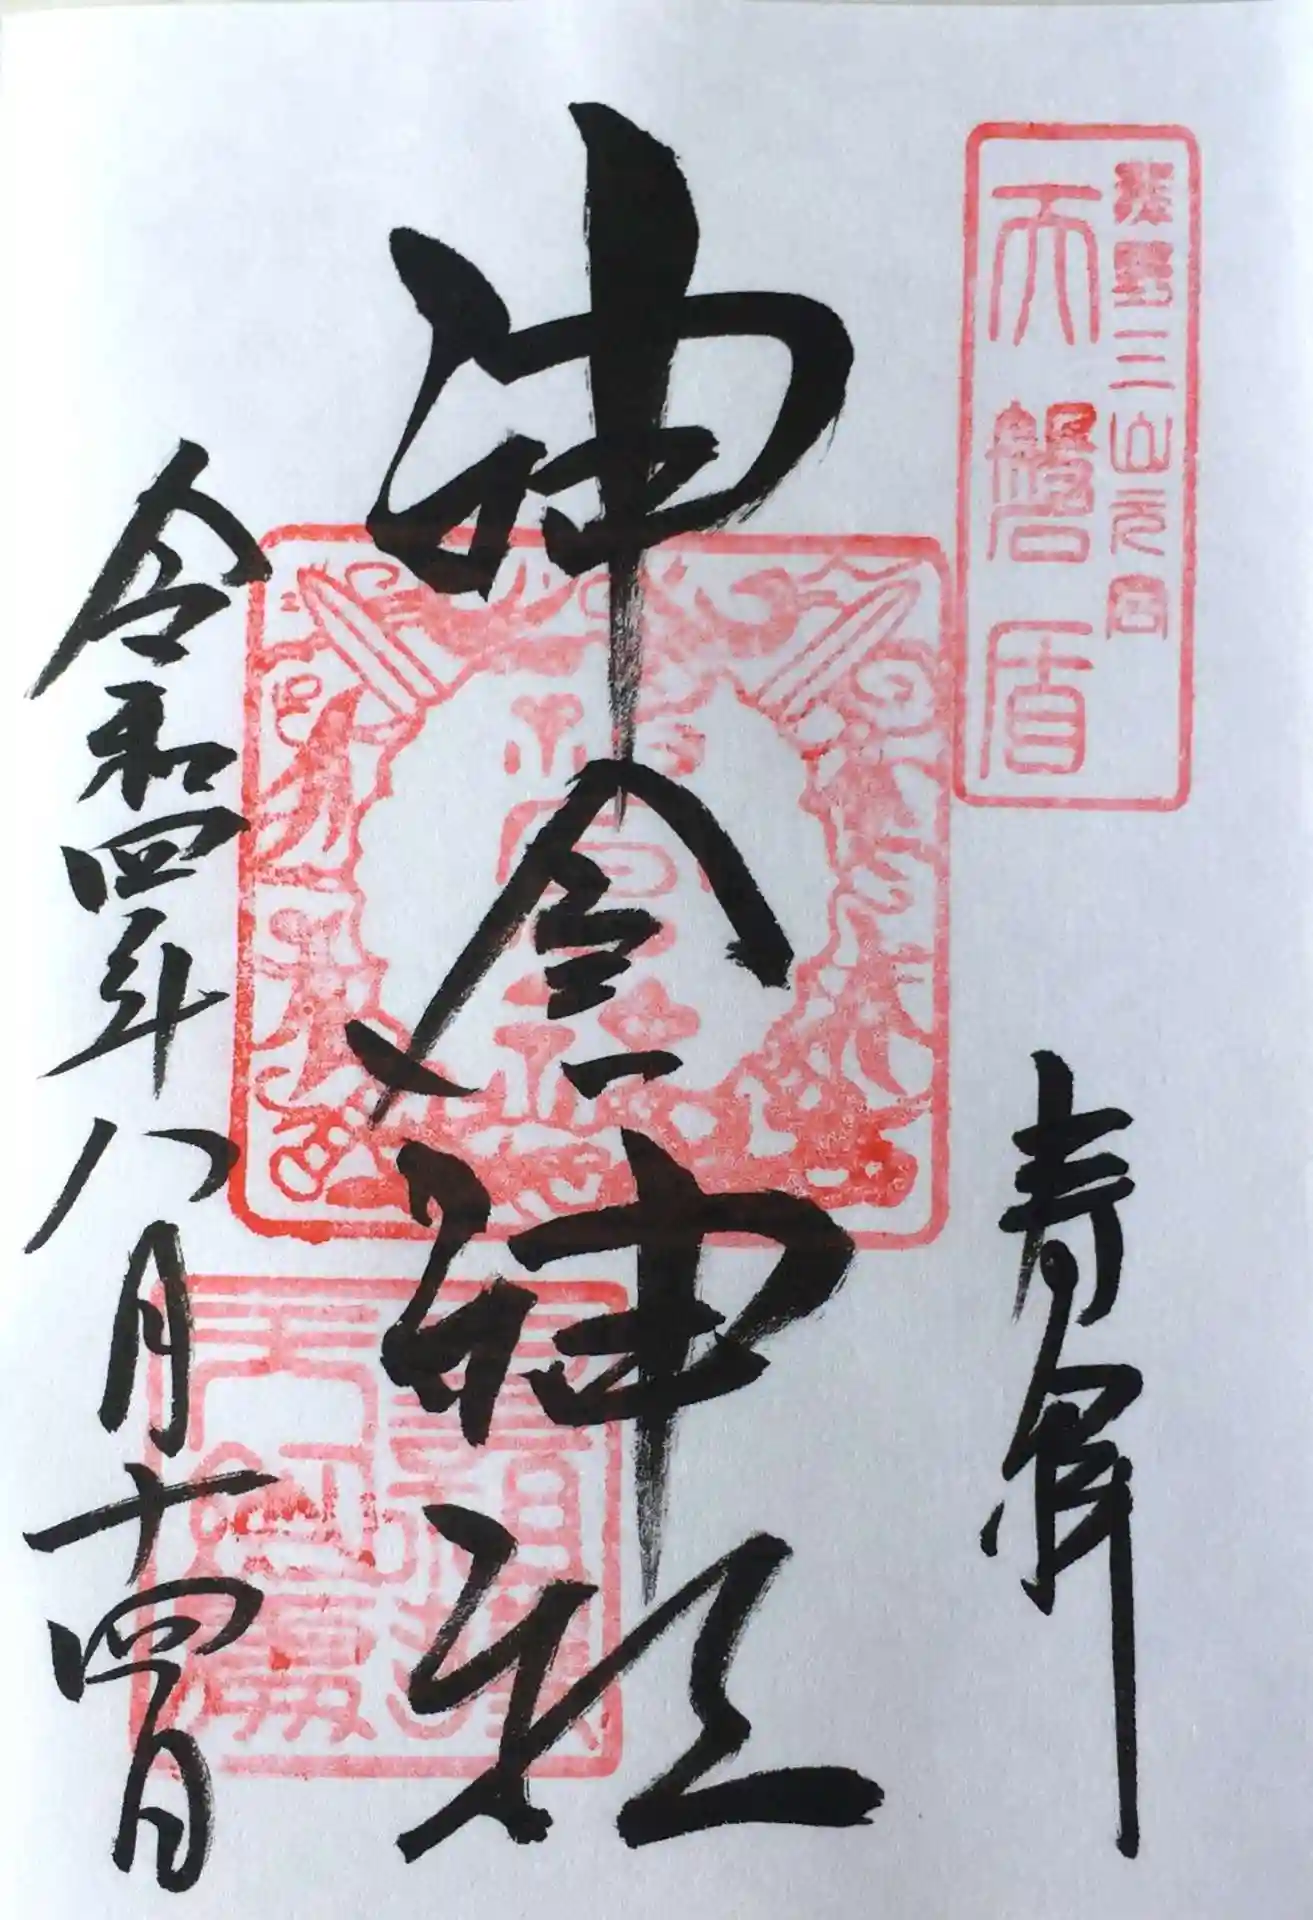 熊野三山元宮
天磐盾
奉拝
神倉神社
令和四年八月十四日